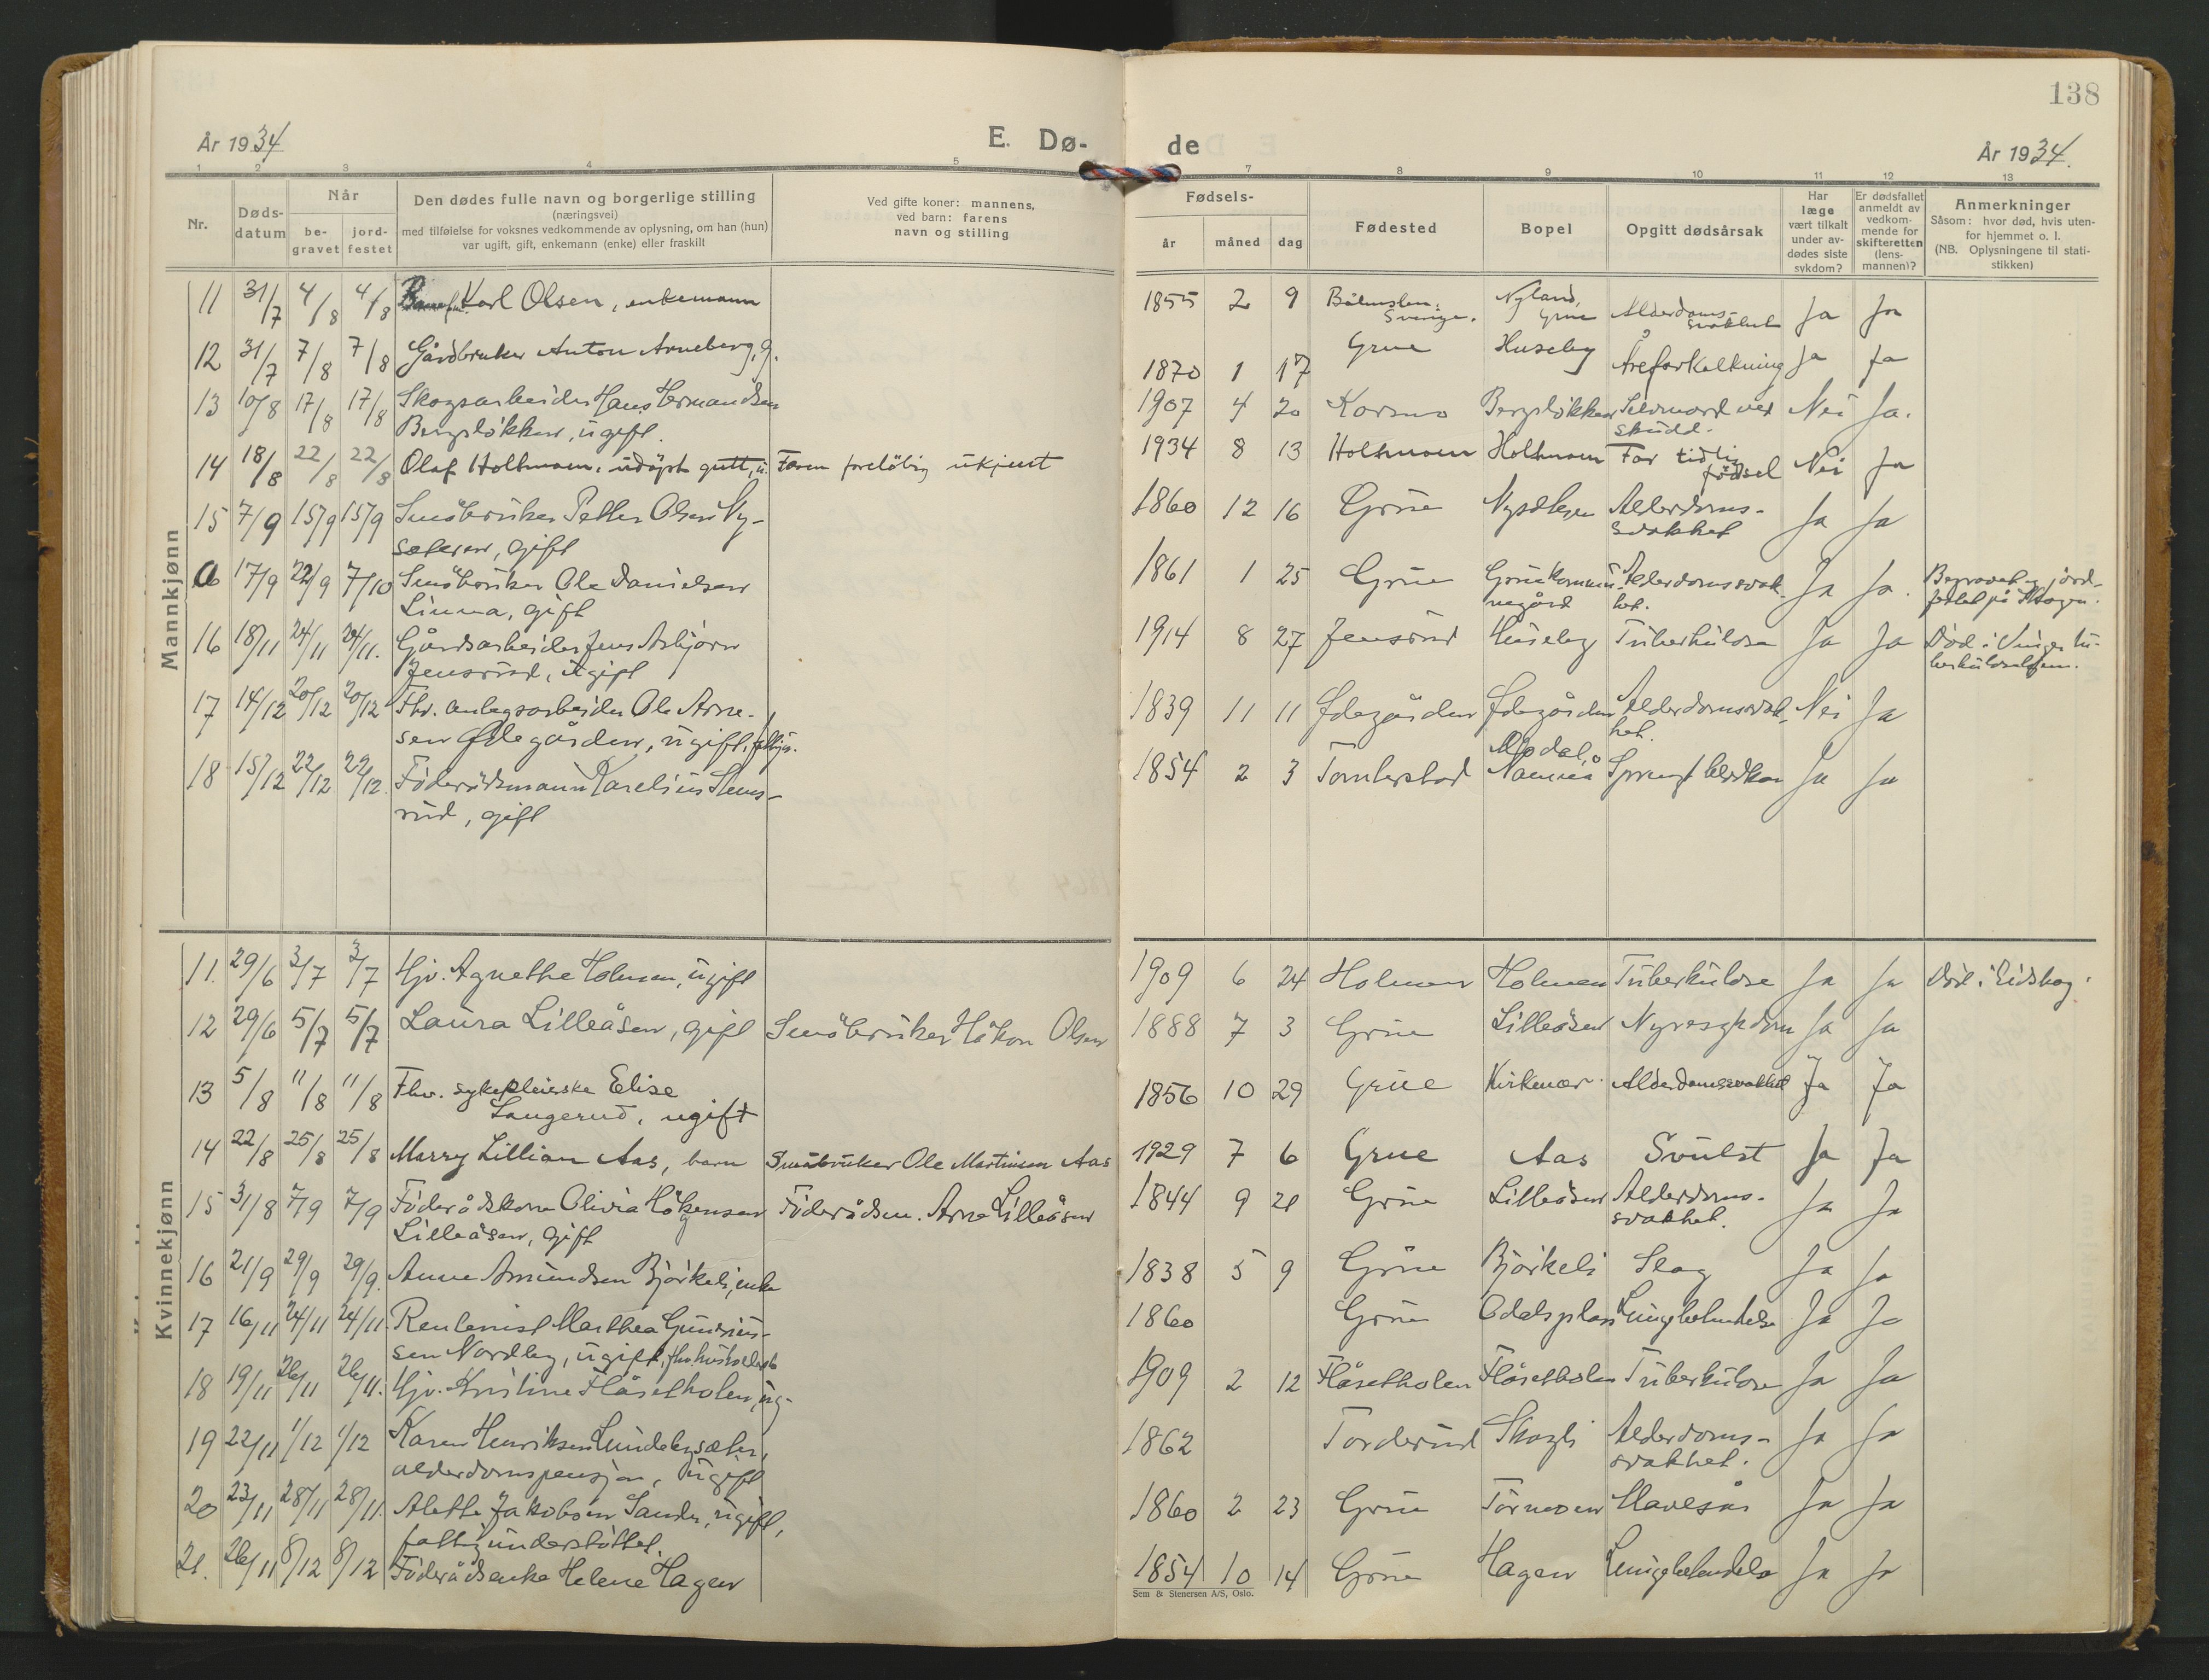 138
År 1934
E. Dø-
de
År 1934.
1 2 3 4 5 7 8 9 10 11 12 13
Nr.
Døds-
datum
Når
be-
gravet
jord-
festet
Den dødes fulle navn og borgerlige stilling
(næringsvei)
med tilføielse for voksnes vedkommende av oplysning, om han (hun)
var ugift, gift, enkemann (enke) eller fraskilt
Ved gifte koner: mannens,
ved barn: farens
navn og stilling
Fødsels-
år
måned
dag
Fødested
Bopel
Opgitt dødsårsak
Har
læge
vært tilkalt
under av-
dødes siste
sykdom?
Er dødsfallet
anmeldt av
vedkom-
mende for
skifteretten
(lens-
mannen)?
Anmerkninger
Såsom: hvor død, hvis uten-
for hjemmet o. l.
(NB. Oplysningene til stati-
stikken)
Mannkjønn
11 31/7 4/8 4/8 Karl Olsen, enkemann 1855 2 9 Sverige. Nyland, Grue Alderdoms-
svakhet Ja Ja
12 31/7 7/8 7/8 Gårdbruker Anton Arneberg, g. 1870 1 17 Grue Huseby Åreforkalkning Ja Ja
13 10/8 17/8 17/8 Skogsarbeider Hans Hermandsen
Bergsløkken, ugift. 1907 4 20 Korsmo Bergsløkken Selvmord ved
skudd. Nei Ja.
14 18/8 22/8 22/8 Olaf Holtmoen, udøpt gutt, u. Faren foreløbig ukjent 1934 8 13 Holtmoen Holtmoen For tidlig
fødsel Nei Ja
15 7/9 15/9 15/9 Småbruker Petter Olsen Ny-
sæteren, gift 1860 12 16 Grue Alderdoms-
svakhet Ja Ja
a 17/9 22/9 7/10 Småbruker Ole Danielsen
Linna, gift 1861 1 25 Grue Grue kommu-
negård Alderdomssvak-
het. Ja Ja. Begravet og jord-
festet på
16 18/11 24/11 24/11. Gårdsarbeider Jens Asbjørn
Jensrud, ugift 1914 8 27 Jensrud Huseby Tuberkulose Ja Ja Død i Vinger tu-
berkulosehjem.
17 14/12 20/12 20/12 Fhv. anlegsarbeider Ole Arne-
sen Ødegården, ugift, 1839 11 11 Ødegården Ødegården Alderdomssvak-
het. Nei Ja
18 15/12 22/12 22/12. Føderådsmann Karelius Stems-
rud, gift 1854 2 3 Tomterstad Namnå Sprengt blindtarm Ja Ja
Kvinnekjønn
11. 29/6 3/7 3/7 Hjv. Agnethe Holmen, ugift 1909 6 24 Holmen Holmen Tuberkulose Ja Ja Død i Eidskog.
12 29/6 5/7 5/7 Laura Lilleåsen, gift Småbruker Håkon Olsen 1888 7 3 Grue Lilleåsen Nyresykdom Ja Ja
13 5/8 11/8 11/8 Fhv. sykepleierske Elise
Langerud, ugift 1856 10 29 Grue Kirkenær. Alderdomssvakhet Ja Ja
14 22/8 25/8 25/8 Marry Lillian Aas, barn Småbruker Ole Martinsen Aas 1929 7 6 Grue Aas Svulst Ja Ja
15 31/8 7/9 7/9 Føderådskone Olivia Håkensen
Lilleåsen, gift Føderådsm. Arne Lilleåsen 1844 9 21 Grue Lilleåsen Alderdoms-
svakhet. Ja Ja
16 21/9 29/9 29/9. Anne Amundsen Bjørkeli, enke 1838 5 9 Grue Bjørkeli Slag Ja Ja
17 16/11 24/11 24/11. Rentenist Marthea Gundrius-
sen Nordby, ugift, 1860 Grue Odalsplass Lungebetendelse Ja Ja
18 19/11 26/11 26/11. Hjv. Kristine Flåsetholen, ug. 1909 2 12 Flåsetholen Flåsetholen Tuberkulose Ja Ja
19 22/11 1/12 1/12 Karen Henriksen Lundebysæter,
alderdomspensjon, ugift 1862 Torderud Skogli Alderdoms-
svakhet. Ja Ja
20 23/11 28/11 28/11. Alette Jakobsen Sander, ugift,
fattigunderstøttet. 1860 2 23 Grue Tørmoen Mavesår Ja Ja
21. 26/11 8/12 8/12 Føderådsenke Helene Hagen 1854 10 14 Grue Hagen Lungebetendelse Ja Ja
Sem & Stenersen A/S, Oslo.